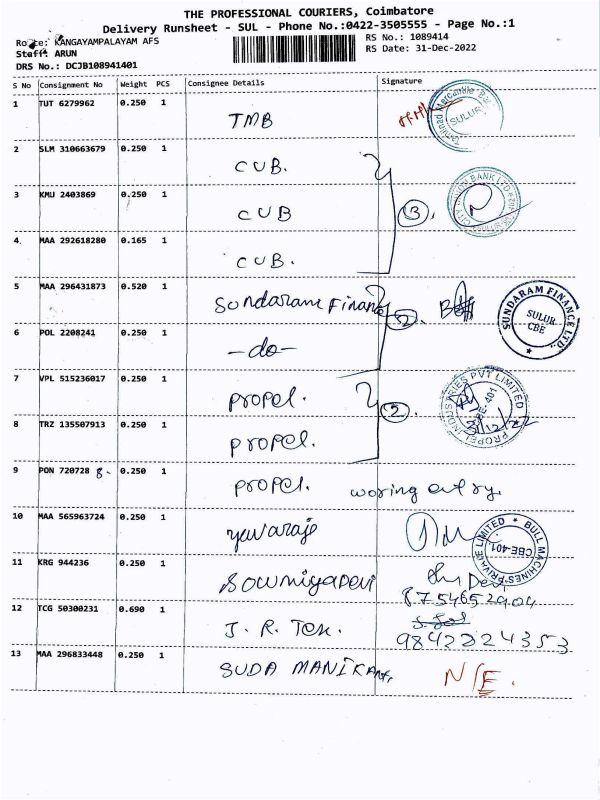 THE PROFESSIONAL COURIERS, Coimbatore
Delivery Runsheet - SUL - Phone No.:0422-3505555 - Page No.:1
Route: KANGAYAMPALAYAM AFS
RS No.: 1089414
Staff: ARUN
RS Date: 31-Dec-2022
DRS No.: DCJB108941401
S No Consignment No Weight PCS Consignee Details Signature
1 TUT 6279962 0.250 1 TMB
SULUR
2 SLM 310663679 0.250 1 CUB.
3 KMU 2403869 0.250 1 CUB 3.
CITY UNION BANK LTD
4 MAA 292618280 0.165 1 CUB.
5 MAA 296431873 0.520 1 Sundaram Finance 2.
SUNDARAM FINANCE LTD.,
SULUR
CBE
6 POL 2208241 0.250 1 -do-
7 VPL 515236017 0.250 1 propel. 2.
PROPEL INDUSTRIES PVT LIMITED
CBE-401
31/12/22
8 TRZ 135507913 0.250 1 propel.
9 PON 720728 8- 0.250 1 propel. woring entry.
10 MAA 565963724 0.250 1 yuvaraje
BULL MACHINES PRIVATE LIMITED
CBE-401
11 KRG 944236 0.250 1 Sowmiyadevi
8754652904
12 TCG 50300231 0.690 1 J. R. Tex.
9842224353
13 MAA 296833448 0.250 1 SUDA MANIKANT, N/E.